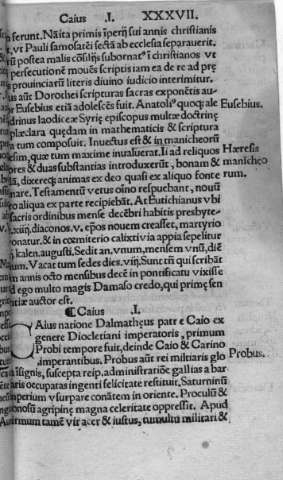 Caius .I. XXXVII.
serunt. Na ita primis īperij sui annis christianis
vt Pauli samosateī sectā ab ecclesia separauerit.
postea malis cōsilijs subornatꝰ ī christianos vt
persecutionē mouēs scriptis iam ea de re ad prę
prouinciarū literis diuino iudicio interimitur.
aūt Dorothei scripturas sacras exponētis au-
Eusebius etiā adolescēs fuit. Anatoliꝰ quoq; ale Eusebius.
drinus laodiceæ Syrię episcopus multæ doctrinę
plæclara quędam in mathematicis & scriptura
tum composuit. Inuectus est & in manicheorū
quæ tum maxime inualuerat. Ii ad reliquos Hæresis
& duas substantias introduxerūt, bonam & manicheo
dixereq; animas ex deo quasi ex aliquo fonte rum.
nare. Testamentū vetus oīno respuebant, nouū
aliqua ex parte recipiebāt. At Eutichianus vbi
sacris ordinibus mense decēbri habitis presbyte-
diaconos .v. epōs nouem creasset, martyrio
onatur. & in cœmiterio calixti via appia sepelitur
kalen. augusti. Sedit an. vnum, mensem vnū, diē
Vacat tum sedes dies .viij. Sunt tñ qui scribāt
annis octo mensibus decē in pontificatu vixisse
ego multo magis Damaso credo, qui primę sen
tiæ auctor est.
¶ Caius .I.
CAius natione Dalmatheūs patre Caio ex
genere Diocletiani imperatoris, primum
Probi tempore fuit, deinde Caio & Carino
imperantibus. Probus aūt rei militaris glo Probus.
ia īsignis, suscepta reip. administratiōe gallias a bar
occupatas ingenti felicitate restituit, Saturninū
imperium vsurpare conātem in oriente. Proculū &
agripinę magna celeritate oppressit. Apud
tamē vir acer & iustus, tumultu militari &